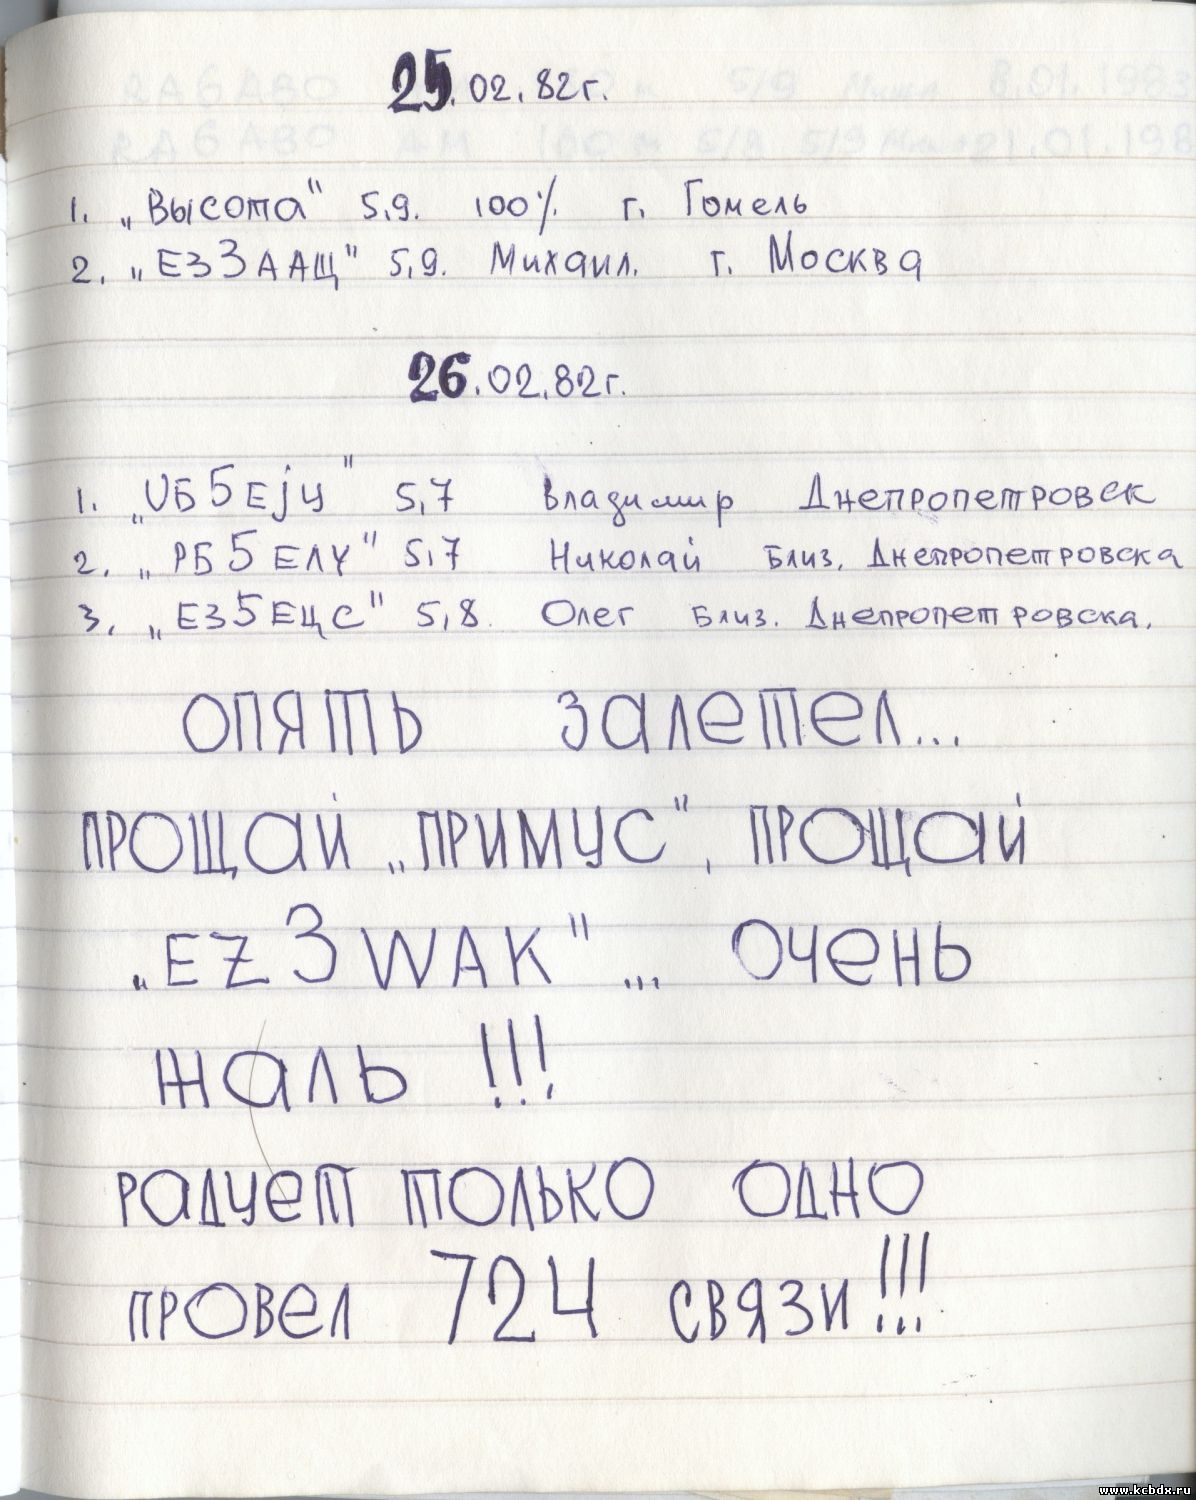 25.02.82г.
1. „Высота" 5,9. 100% г. Гомель
2. „ЕЗ3ААЩ" 5,9. Михаил. г. Москва
26.02.82г.
1. „UБ5ЕjУ" 5,7 Владимир Днепропетровск
2. „РБ5ЕЛУ" 5,7 Николай Близ. Днепропетровска
3. „ЕЗ5ЕЦС" 5,8. Олег Близ. Днепропетровска.
ОПЯТЬ ЗАЛЕТЕЛ...
ПРОЩАЙ „ПРИМУС", ПРОЩАЙ
„EZ3WAK"... ОЧЕНЬ
ЖАЛЬ !!!
РАДУЕТ ТОЛЬКО ОДНО
ПРОВЕЛ 724 СВЯЗИ!!!
www.kcbdx.ru